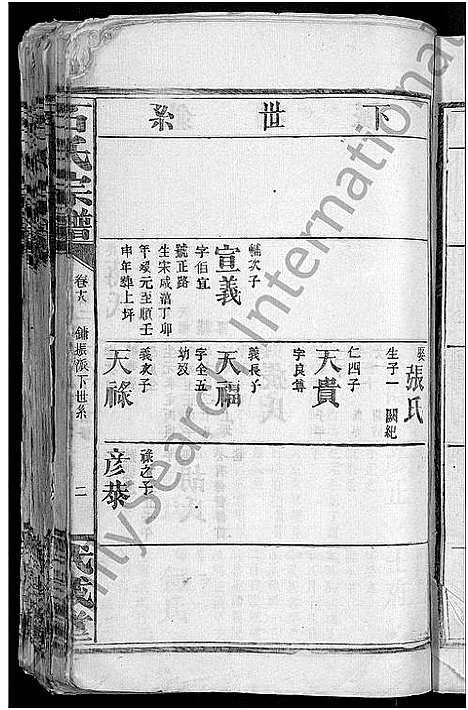 下世系
幡次子
宣義
字伯宜
號正路
生宋咸淳丁卯
年歿元至順壬
申年葬上坪
娶張氏
生子一 闕紀
仁四子
天貴
字良尊
義長子
天福
字全五
幼歿
義次子
天祿
祿之子
彦恭
石氏宗譜
派下世系
二
武威堂
FamilySearch International